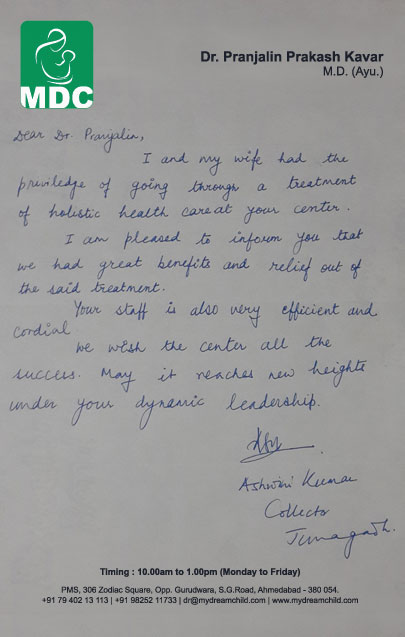 MDC
Dr. Pranjalin Prakash Kavar
M.D. (Ayu.)
Dear Dr. Pranjalin,
I and my wife had the
previledge of going through a treatment
of holistic health care at your center.
I am pleased to inform you that
we had great benefits and relief out of
the said treatment.
Your staff is also very efficient and
cordial
We wish the center all the
success. May it reaches new heights
under your dynamic leadership.
Ashwini Kumar
Collector
Junagadh.
Timing : 10.00am to 1.00pm (Monday to Friday)
PMS, 306 Zodiac Square, Opp. Gurudwara, S.G.Road, Ahmedabad - 380 054.
+91 79 402 13 113 | +91 98252 11733 | dr@mydreamchild.com | www.mydreamchild.com